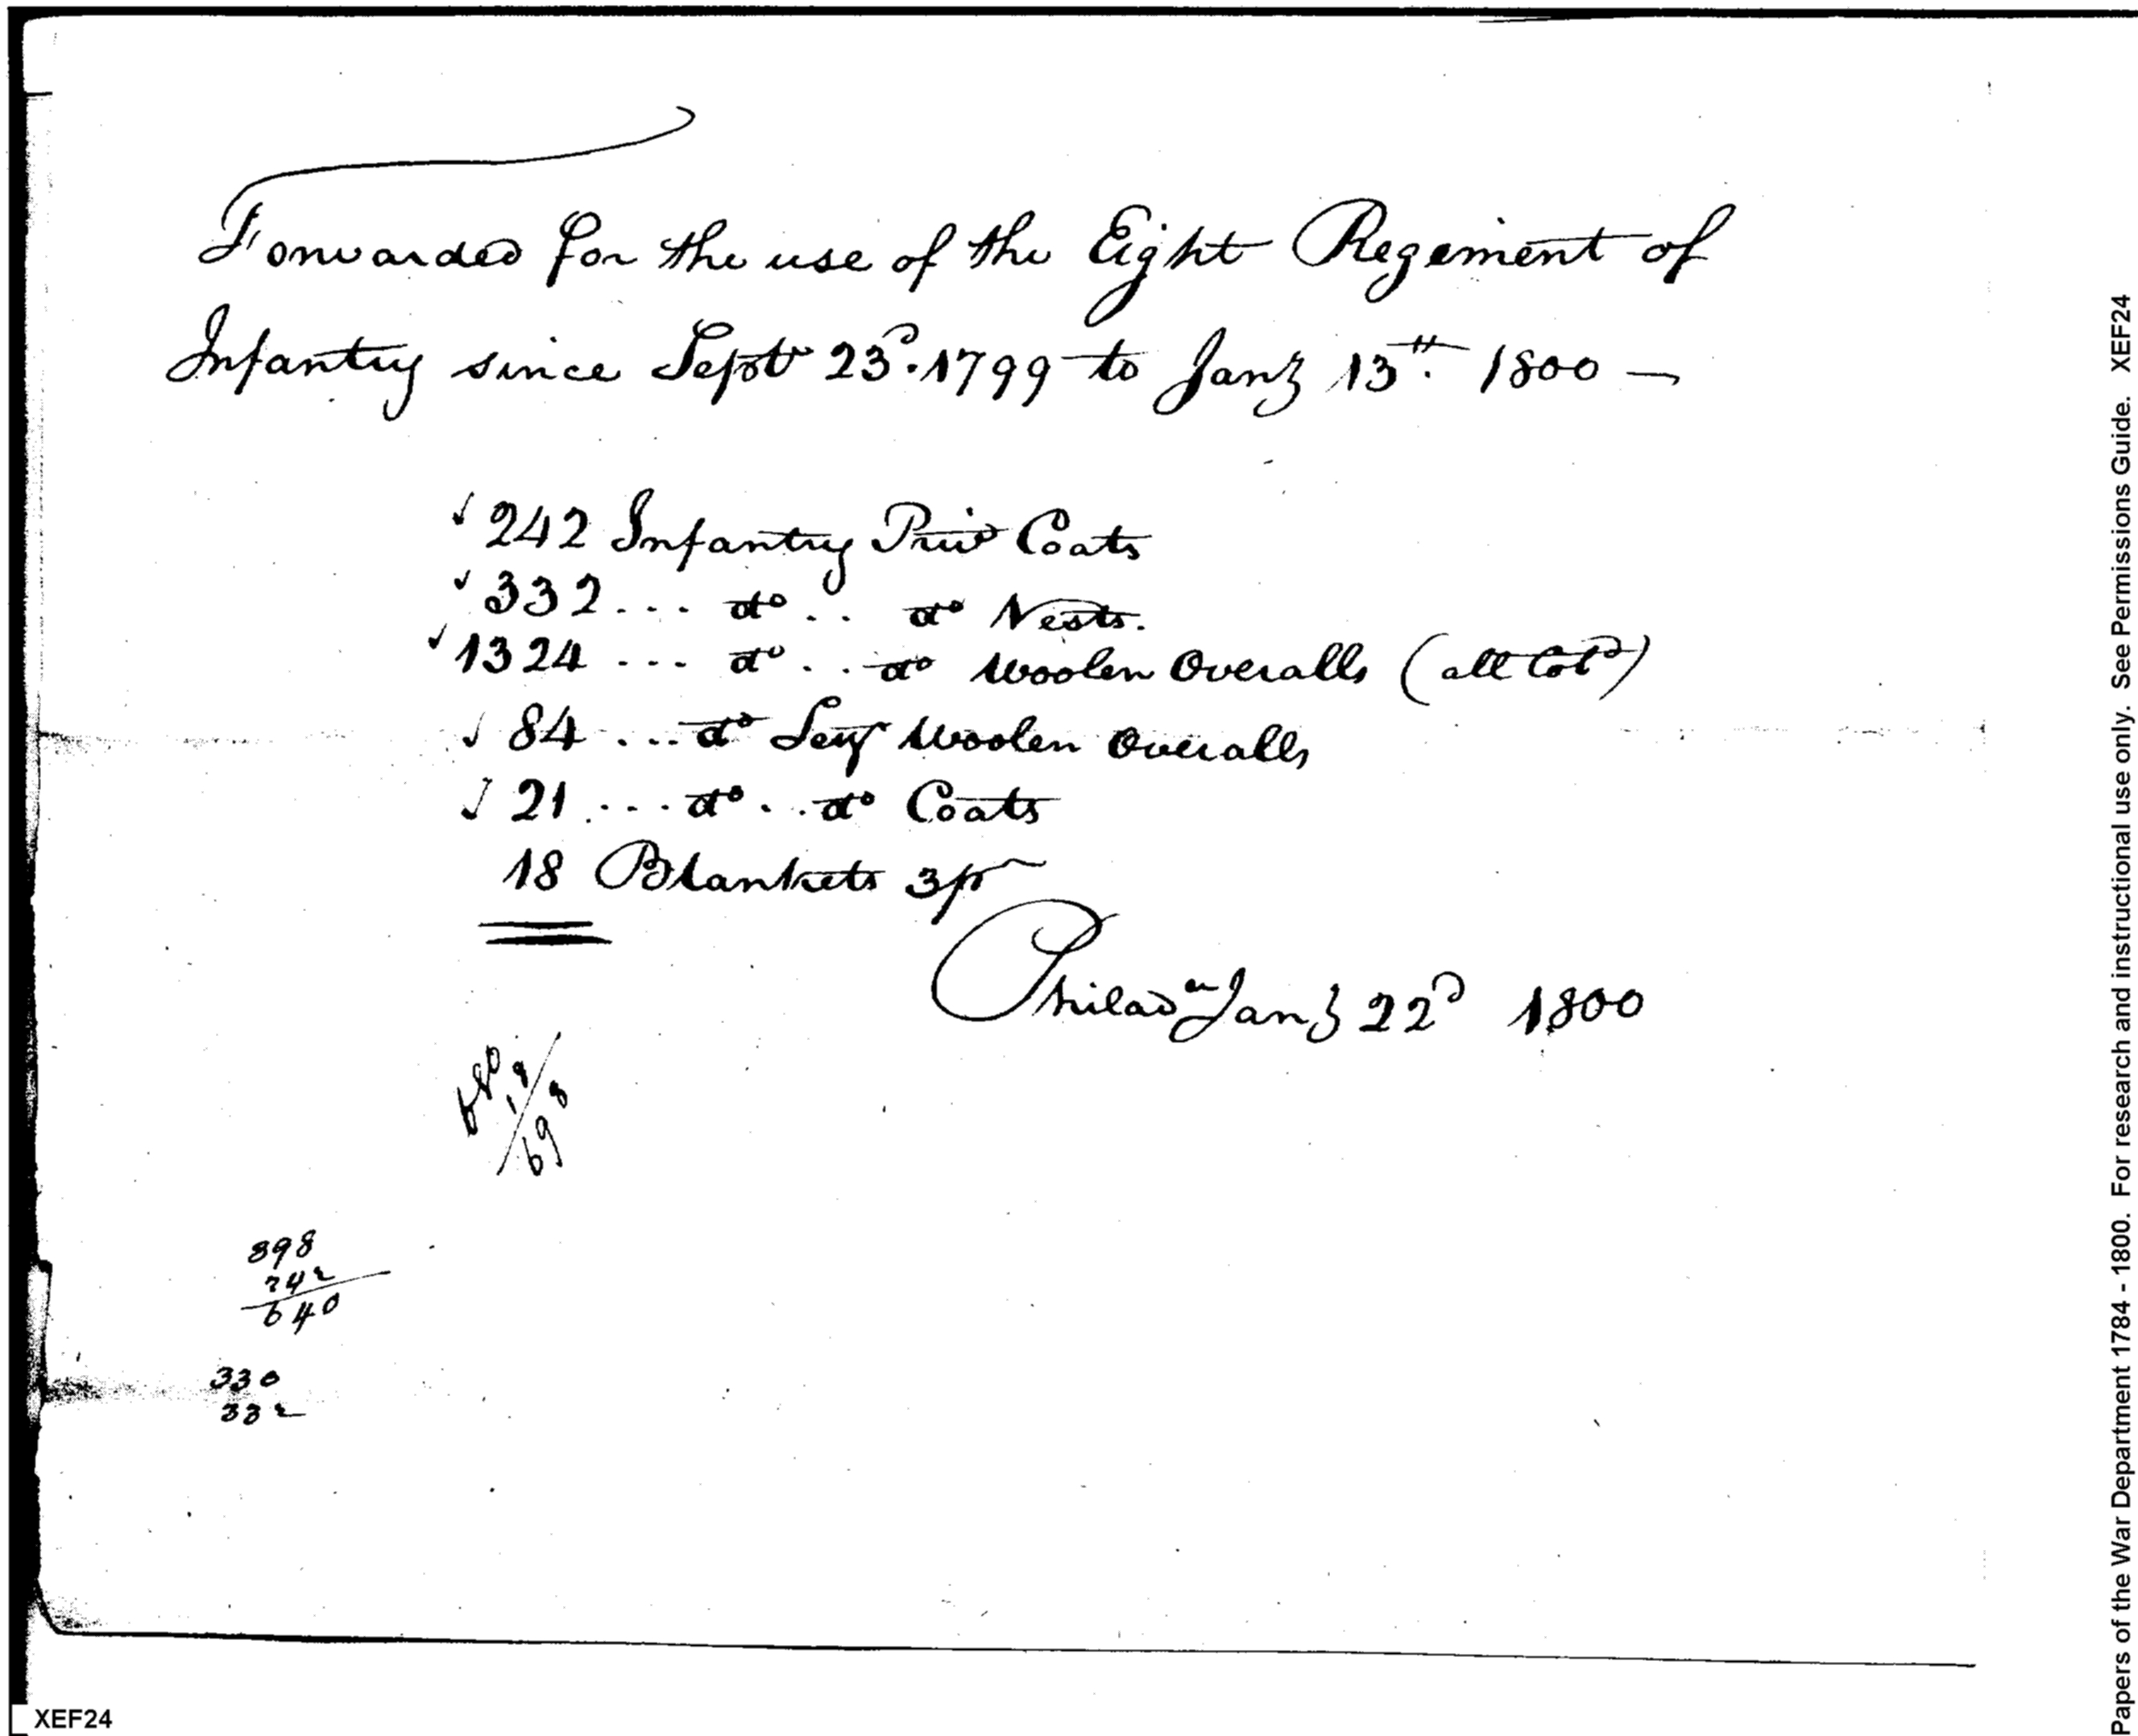 Forwarded for the use of the Eight Regement of
Infantry since Sept 23d. 1799 to Jany 13th. 1800 —
✓ 242 Infantry Priv Coats
✓ 332 ... do .. do Vests.
✓ 1324 ... do .. do Woolen Overalls (all Cold)
✓ 84 ... do Serj Woolen Overalls
✓ 21 .... do .. do Coats
18 Blankets 3 pt
Philada Jany 22d 1800
680
18
698
398
242
640
330
332
XEF24
Papers of the War Department 1784 - 1800. For research and instructional use only. See Permissions Guide. XEF24